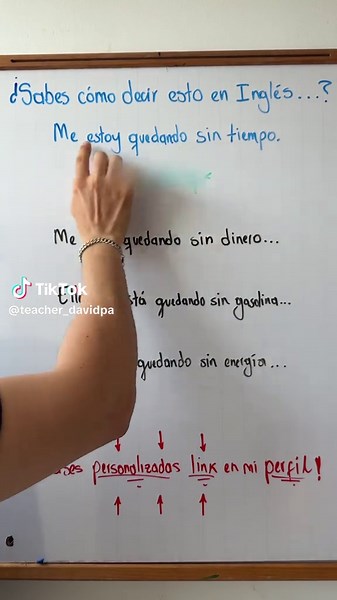 ¿Sabes cómo decir esto en Inglés...?
Me estoy quedando sin tiempo.
Me quedando sin dinero...
está quedando sin gasolina...
quedando sin energía...
personalizados link en mi perfil!
TikTok
@teacher_davidpa